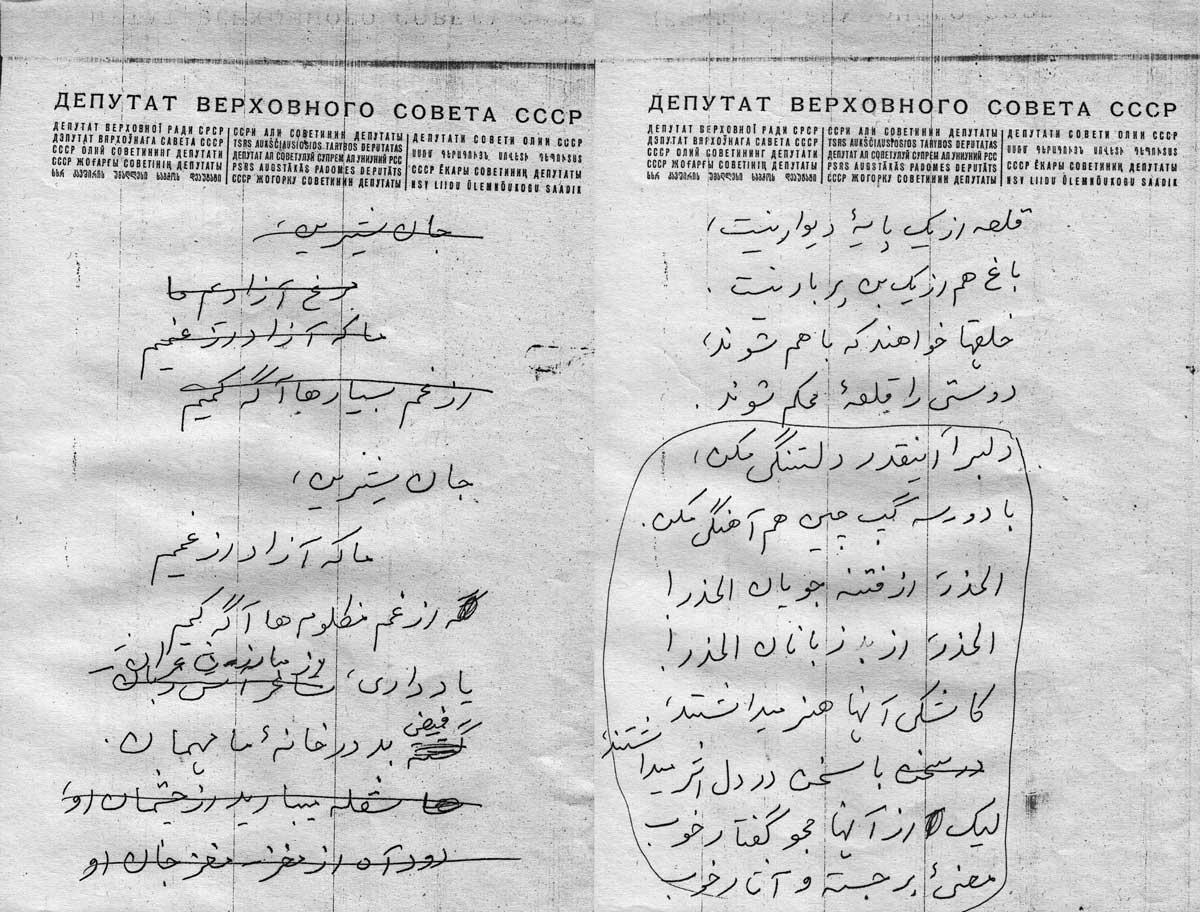 ДЕПУТАТ ВЕРХОВНОГО СОВЕТА СССР
ДЕПУТАТ ВЕРХОВНОЇ РАДИ СРСР
ДЭПУТАТ ВЯРХОЎНАГА САВЕТА СССР
СССР ОЛИЙ СОВЕТИНИНГ ДЕПУТАТИ
СССР ЖОҒАРҒЫ СОВЕТІНІҢ ДЕПУТАТЫ
ССРИ АЛИ СОВЕТИНИН ДЕПУТАТЫ
TSRS AUKŠČIAUSIOSIOS TARYBOS DEPUTATAS
ДЕПУТАТ АЛ СОВЕТУЛУЙ СУПРЕМ АЛ УНИУНИЙ РСС
PSRS AUGSTĀKĀS PADOMES DEPUTĀTS
СССР ЖОГОРКУ СОВЕТИНИН ДЕПУТАТЫ
ДЕПУТАТИ СОВЕТИ ОЛИИ СССР
СССР ЁКАРЫ СОВЕТИНИҢ ДЕПУТАТЫ
NSV LIIDU ÜLEMNÕUKOGU SAADIK
جان شیرین،
مرغ آزادیم ما
ما که آزاد از غمیم
از غم بسیارها آگه کمیم
جان شیرین،
ما که آزاد از غمیم
از غم مظلوم ها آگه کمیم
یاد داری،
فیضی
بد در خانهٔ ما مهمان.
شعله میبارید از چشمان او،
دود آه از مغز مغز جان او
ДЕПУТАТ ВЕРХОВНОГО СОВЕТА СССР
ДЕПУТАТ ВЕРХОВНОЇ РАДИ СРСР
ДЭПУТАТ ВЯРХОЎНАГА САВЕТА СССР
СССР ОЛИЙ СОВЕТИНИНГ ДЕПУТАТИ
СССР ЖОҒАРҒЫ СОВЕТІНІҢ ДЕПУТАТЫ
ССРИ АЛИ СОВЕТИНИН ДЕПУТАТЫ
TSRS AUKŠČIAUSIOSIOS TARYBOS DEPUTATAS
ДЕПУТАТ АЛ СОВЕТУЛУЙ СУПРЕМ АЛ УНИУНИЙ РСС
PSRS AUGSTĀKĀS PADOMES DEPUTĀTS
СССР ЖОГОРКУ СОВЕТИНИН ДЕПУТАТЫ
ДЕПУТАТИ СОВЕТИ ОЛИИ СССР
СССР ЁКАРЫ СОВЕТИНИҢ ДЕПУТАТЫ
NSV LIIDU ÜLEMNÕUKOGU SAADIK
قلعه از یک پایهٔ دیوار نیست،
باغ هم از یک بن پر بار نیست.
خلقها خواهند که با هم شوند،
دوستی را قلعهٔ محکم شوند.
دلبرا اینقدر دلتنگی مکن،
با دو سه گپ چین هم آهنگی مکن.
الحذر از فتنه جویان الحذر!
الحذر از بد زبانان الحذر!
کاشکی آنها هنر میداشتند،
در سخن با سخن در دل اثر میداشتند،
لیک از آنها مجو گفتار خوب
معنیٔ برجسته و آثار خوب